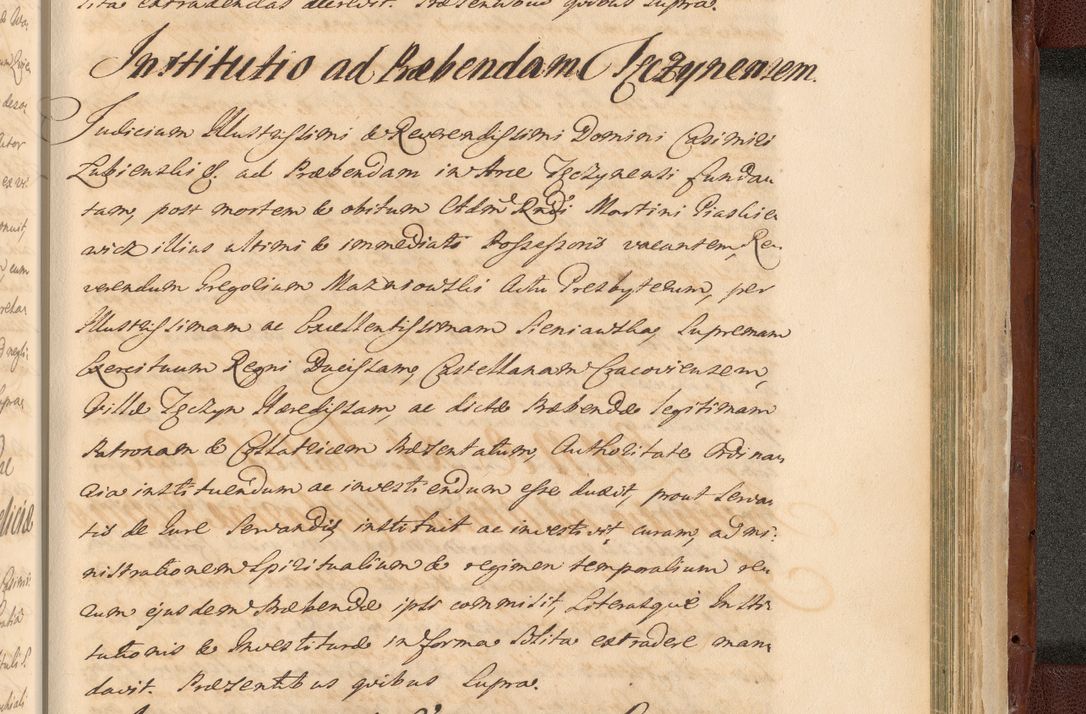 sita extradendas decrevit. Præsentibus quibus supra.
Institutio ad Præbendam Tęczynensem.
Judicium Illustrissimi & Reverendissimi Domini Casimiri
Łubienski &. ad Præbendam in Arce Tęczynensi fundan
tam, post mortem & obitum Adm Rndi Martini Piaskie
wicz illius ultimi & immediati Possessoris vacantem, Re
verendum Gregorium Mazurowski Actu Presbyterum, per
Illustrissimam ac Excellentissimam Sieniawska, Supremam
Exercituum Regni Ducissam, Castellanam Cracoviensem,
Villæ Tęczyn Hæredissam, ac dictæ Præbendæ legitimam
Patronam & Collatricem Præsentatum, Authoritate Ordina
ria instituendum ac investiendum esse duxit, prout serva
tis de Jure servandis instituit ac investivit, curam, admi
nistrationem Spiritualium & regimen temporalium re
rum ejusdem Præbendæ ipsi commisit, Literasque Insti
tutionis & Investituræ in forma solita extradere man
davit. Præsentibus quibus supra.